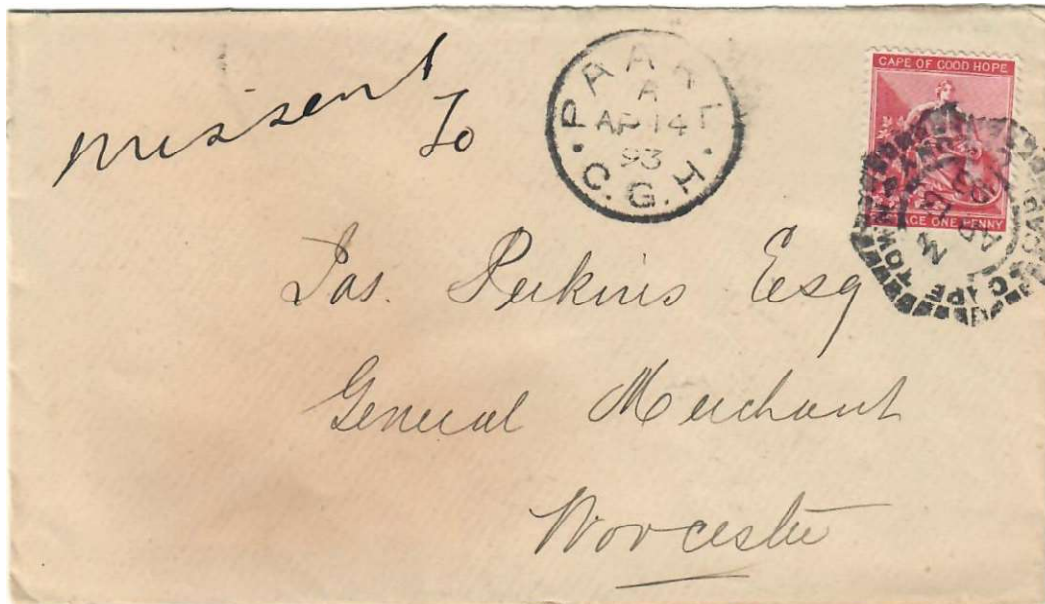 missent
To
PAARL
A
AP 14
93
C.G.H.
CAPE OF GOOD HOPE
POSTAGE ONE PENNY
CAPE TOWN
AP
13
93
Jas. Perkins Esq
General Merchant
Worcester